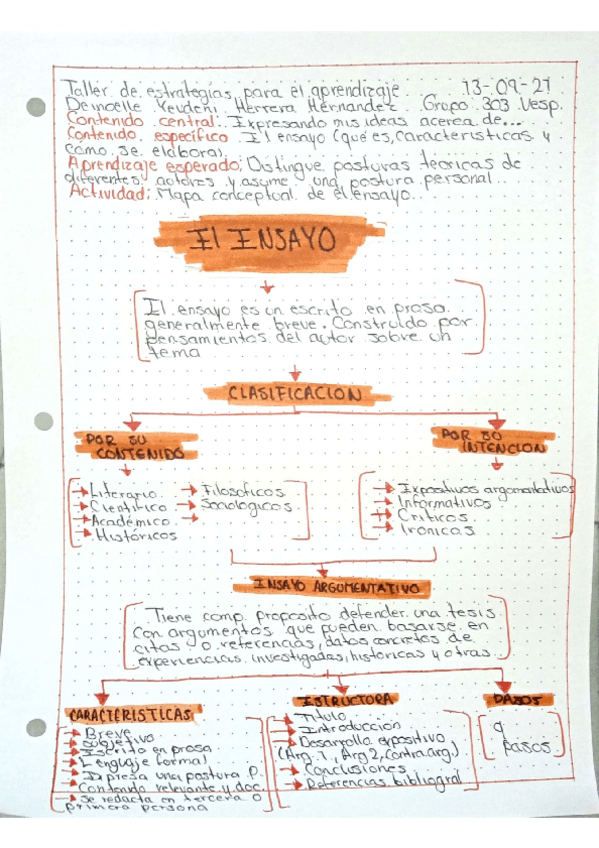 Taller de estrategias para el aprendizaje. 13-09-21
Deinoelle Yeudeni Herrera Hernandez Grupo 303 Vesp.
Contenido central: Expresando mis ideas acerca de...
Contenido específico: El ensayo (que es, características y
como se elabora).
Aprendizaje esperado: Distingue posturas teoricas de
diferentes autores y asyme una postura personal.
Actividad: Mapa conceptual de el ensayo.
El ENSAYO
El ensayo es un escrito en prosa
generalmente breve. Construido por
pensamientos del autor sobre un
tema
CLASIFICACION
POR SU
CONTENIDO
POR SU
INTENCION
Literario
Científico
Académico
Históricos
Filosóficos
Sociologicos
Expositivos argumentativos
Informativos
Criticos
Ironicas
ENSAYO ARGUMENTATIVO
Tiene como proposito defender una tesis
con argumentos que pueden basarse en
citas o referencias, datos concretos de
experiencias investigadas, historicas y otras
CARACTERISTICAS
Breve
Subjetivo
Escrito en prosa
Lenguaje formal
Expresa una postura p.
Contenido relevante y doc.
Se redacta en tercera o
primera persona
ESTRUCTURA
Titulo
Introducción
Desarrollo expositivo
(Arg. 1, Arg 2, Contra arg.)
Conclusiones
Referencias bibliograf
PASOS
9
pasos